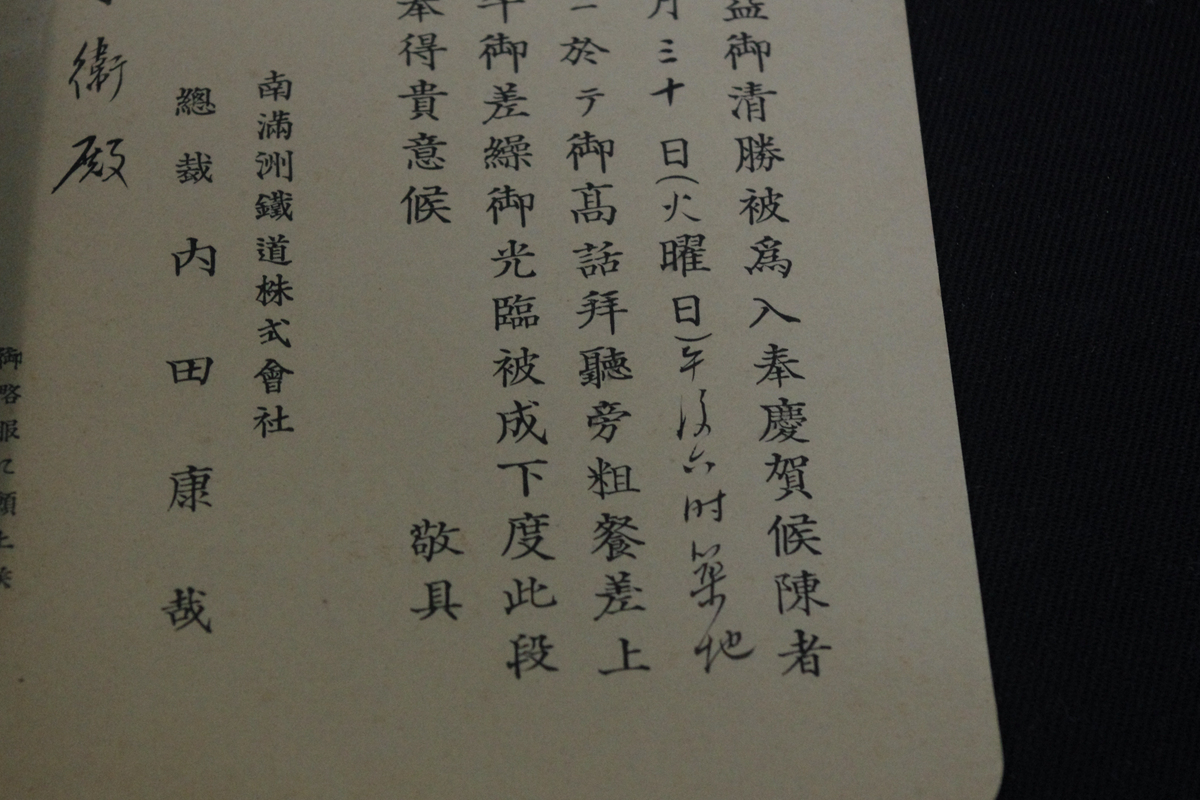 益御清勝被爲入奉慶賀候陳者
月三十日(火曜日)午後六時築地
ニ於テ御高話拜聽旁粗餐差上
午御差繰御光臨被成下度此段
奉得貴意候 敬具
南滿洲鐵道株式會社
總裁 内田康哉
衞殿
御略服ニ願上候